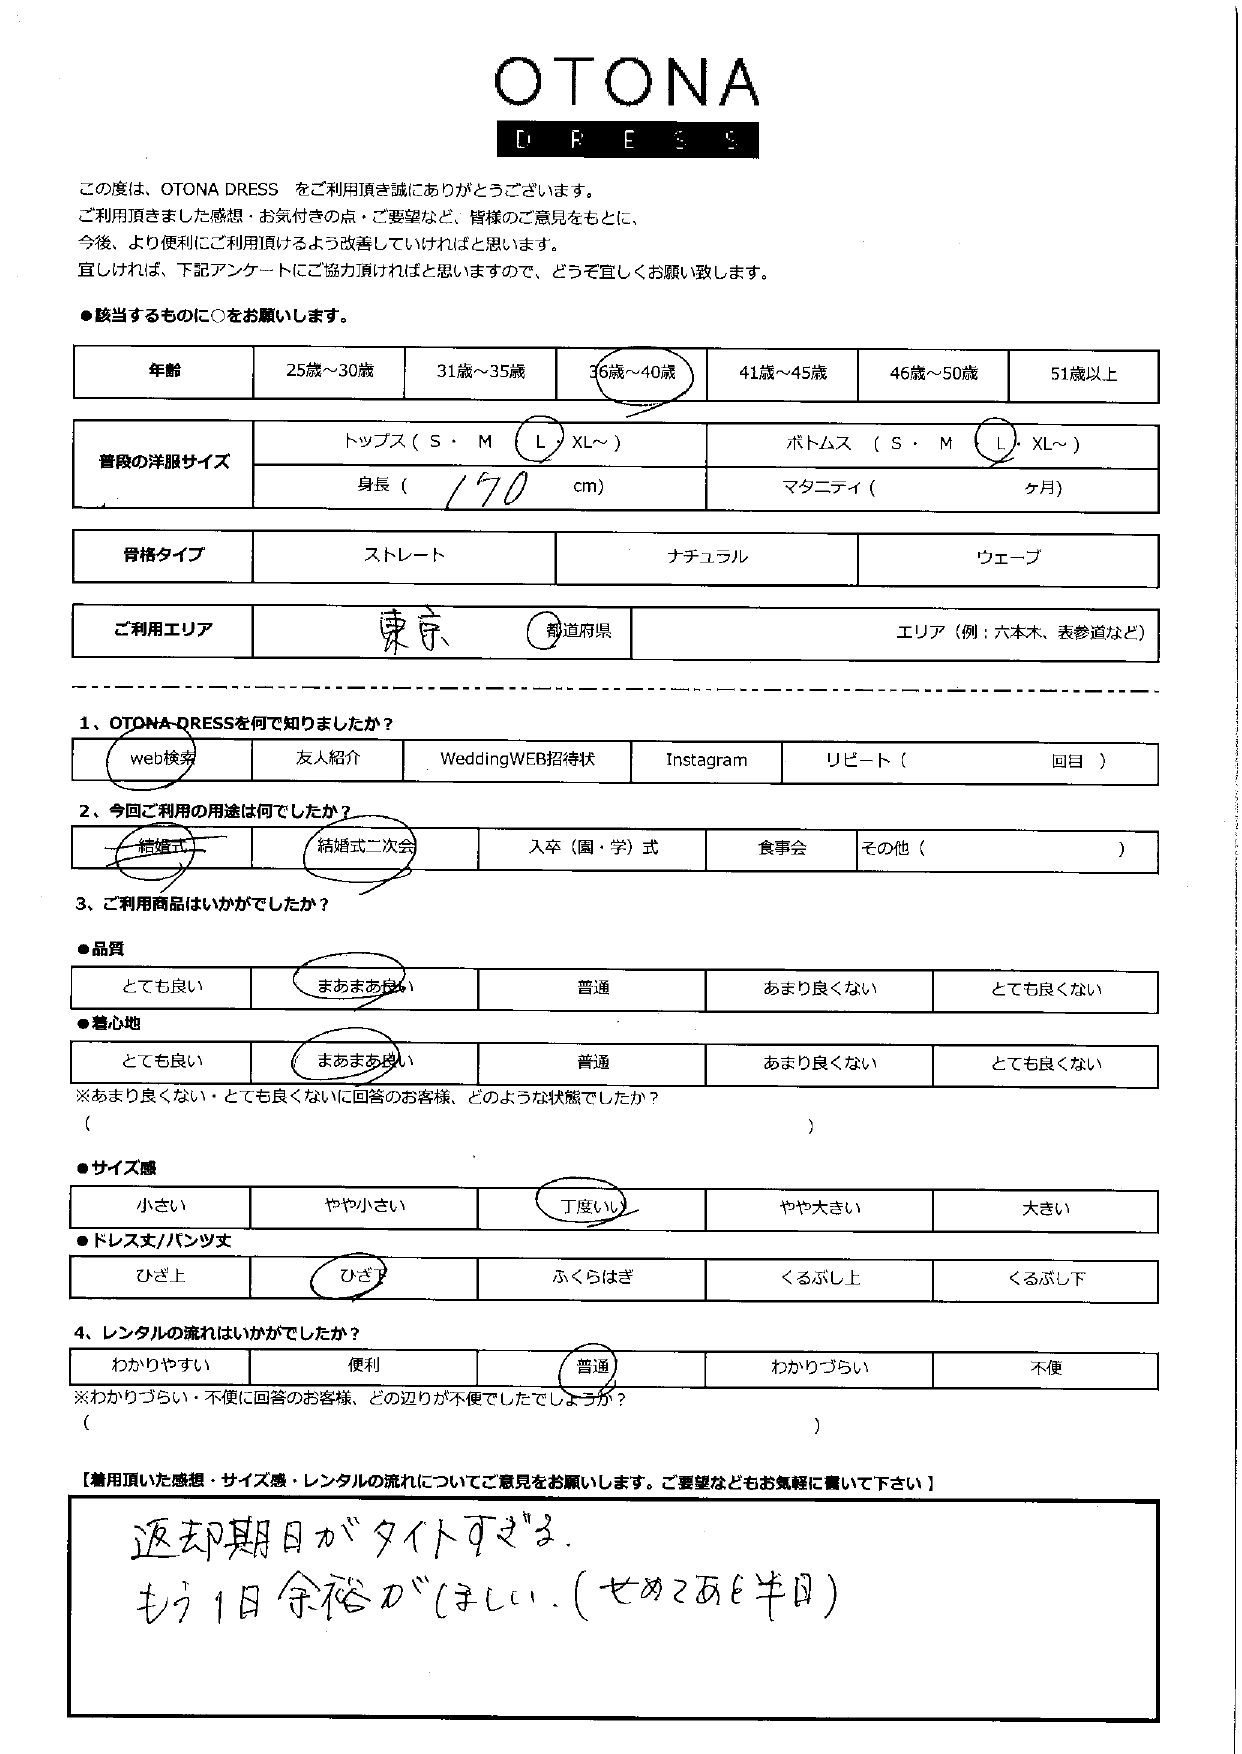 OTONA
DRESS
この度は、OTONA DRESS　をご利用頂き誠にありがとうございます。
ご利用頂きました感想・お気付きの点・ご要望など、皆様のご意見をもとに、
今後、より便利にご利用頂けるよう改善していければと思います。
宜しければ、下記アンケートにご協力頂ければと思いますので、どうぞ宜しくお願い致します。
●該当するものに○をお願いします。
年齢 25歳～30歳 31歳～35歳 36歳～40歳 41歳～45歳 46歳～50歳 51歳以上
普段の洋服サイズ トップス ( S ・ M ・ L ・ XL～ ) ボトムス ( S ・ M ・ L ・ XL～ )
身長 ( 170 cm) マタニティ ( ケ月)
骨格タイプ ストレート ナチュラル ウェーブ
ご利用エリア 東京 都道府県 エリア（例：六本木、表参道など）
1、OTONA DRESSを何で知りましたか？
web検索 友人紹介 WeddingWEB招待状 Instagram リピート ( 回目 )
2、今回ご利用の用途は何でしたか？
結婚式 結婚式二次会 入卒（園・学）式 食事会 その他 ( )
3、ご利用商品はいかがでしたか？
●品質
とても良い まあまあ良い 普通 あまり良くない とても良くない
●着心地
とても良い まあまあ良い 普通 あまり良くない とても良くない
※あまり良くない・とても良くないに回答のお客様、どのような状態でしたか？
( )
●サイズ感
小さい やや小さい 丁度いい やや大きい 大きい
●ドレス丈/パンツ丈
ひざ上 ひざ下 ふくらはぎ くるぶし上 くるぶし下
4、レンタルの流れはいかがでしたか？
わかりやすい 便利 普通 わかりづらい 不便
※わかりづらい・不便に回答のお客様、どの辺りが不便でしたでしょうか？
( )
【着用頂いた感想・サイズ感・レンタルの流れについてご意見をお願いします。ご要望などもお気軽に書いて下さい】
返却期日がタイトすぎる.
もう1日余裕がほしい.(せめてあと半日)